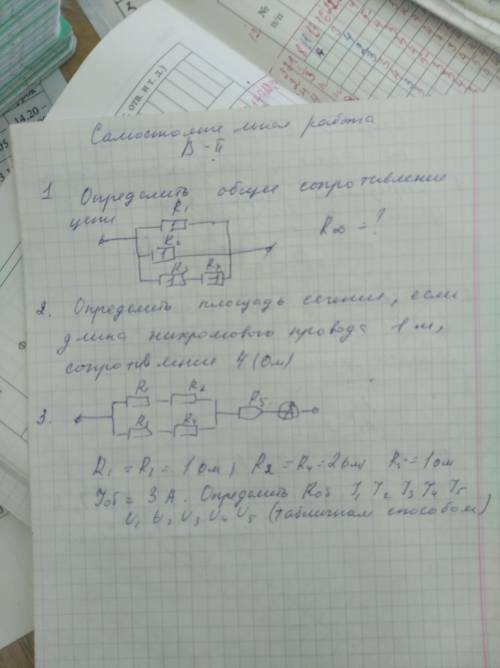 14.20 -
отв. и т. д.)
№
п/п
Самостоятельная работа
В - II
1 Определить общее сопротивление
цепи
R1
R2
R3 R4
1 1 1 1
Rоб = ?
2. Определить площадь сечения, если
длина нихромового провода 1 м,
сопротивление 4 (Ом)
3.
R R2
R3 R4
R5 A
R1 = R3 = 1 Ом; R2 = R4 = 2 Ом R5 = 1 Ом
Iоб = 3 А. Определить Rоб I1 I2 I3 I4 I5
U1 U2 U3 U4 U5 (табличным способом)